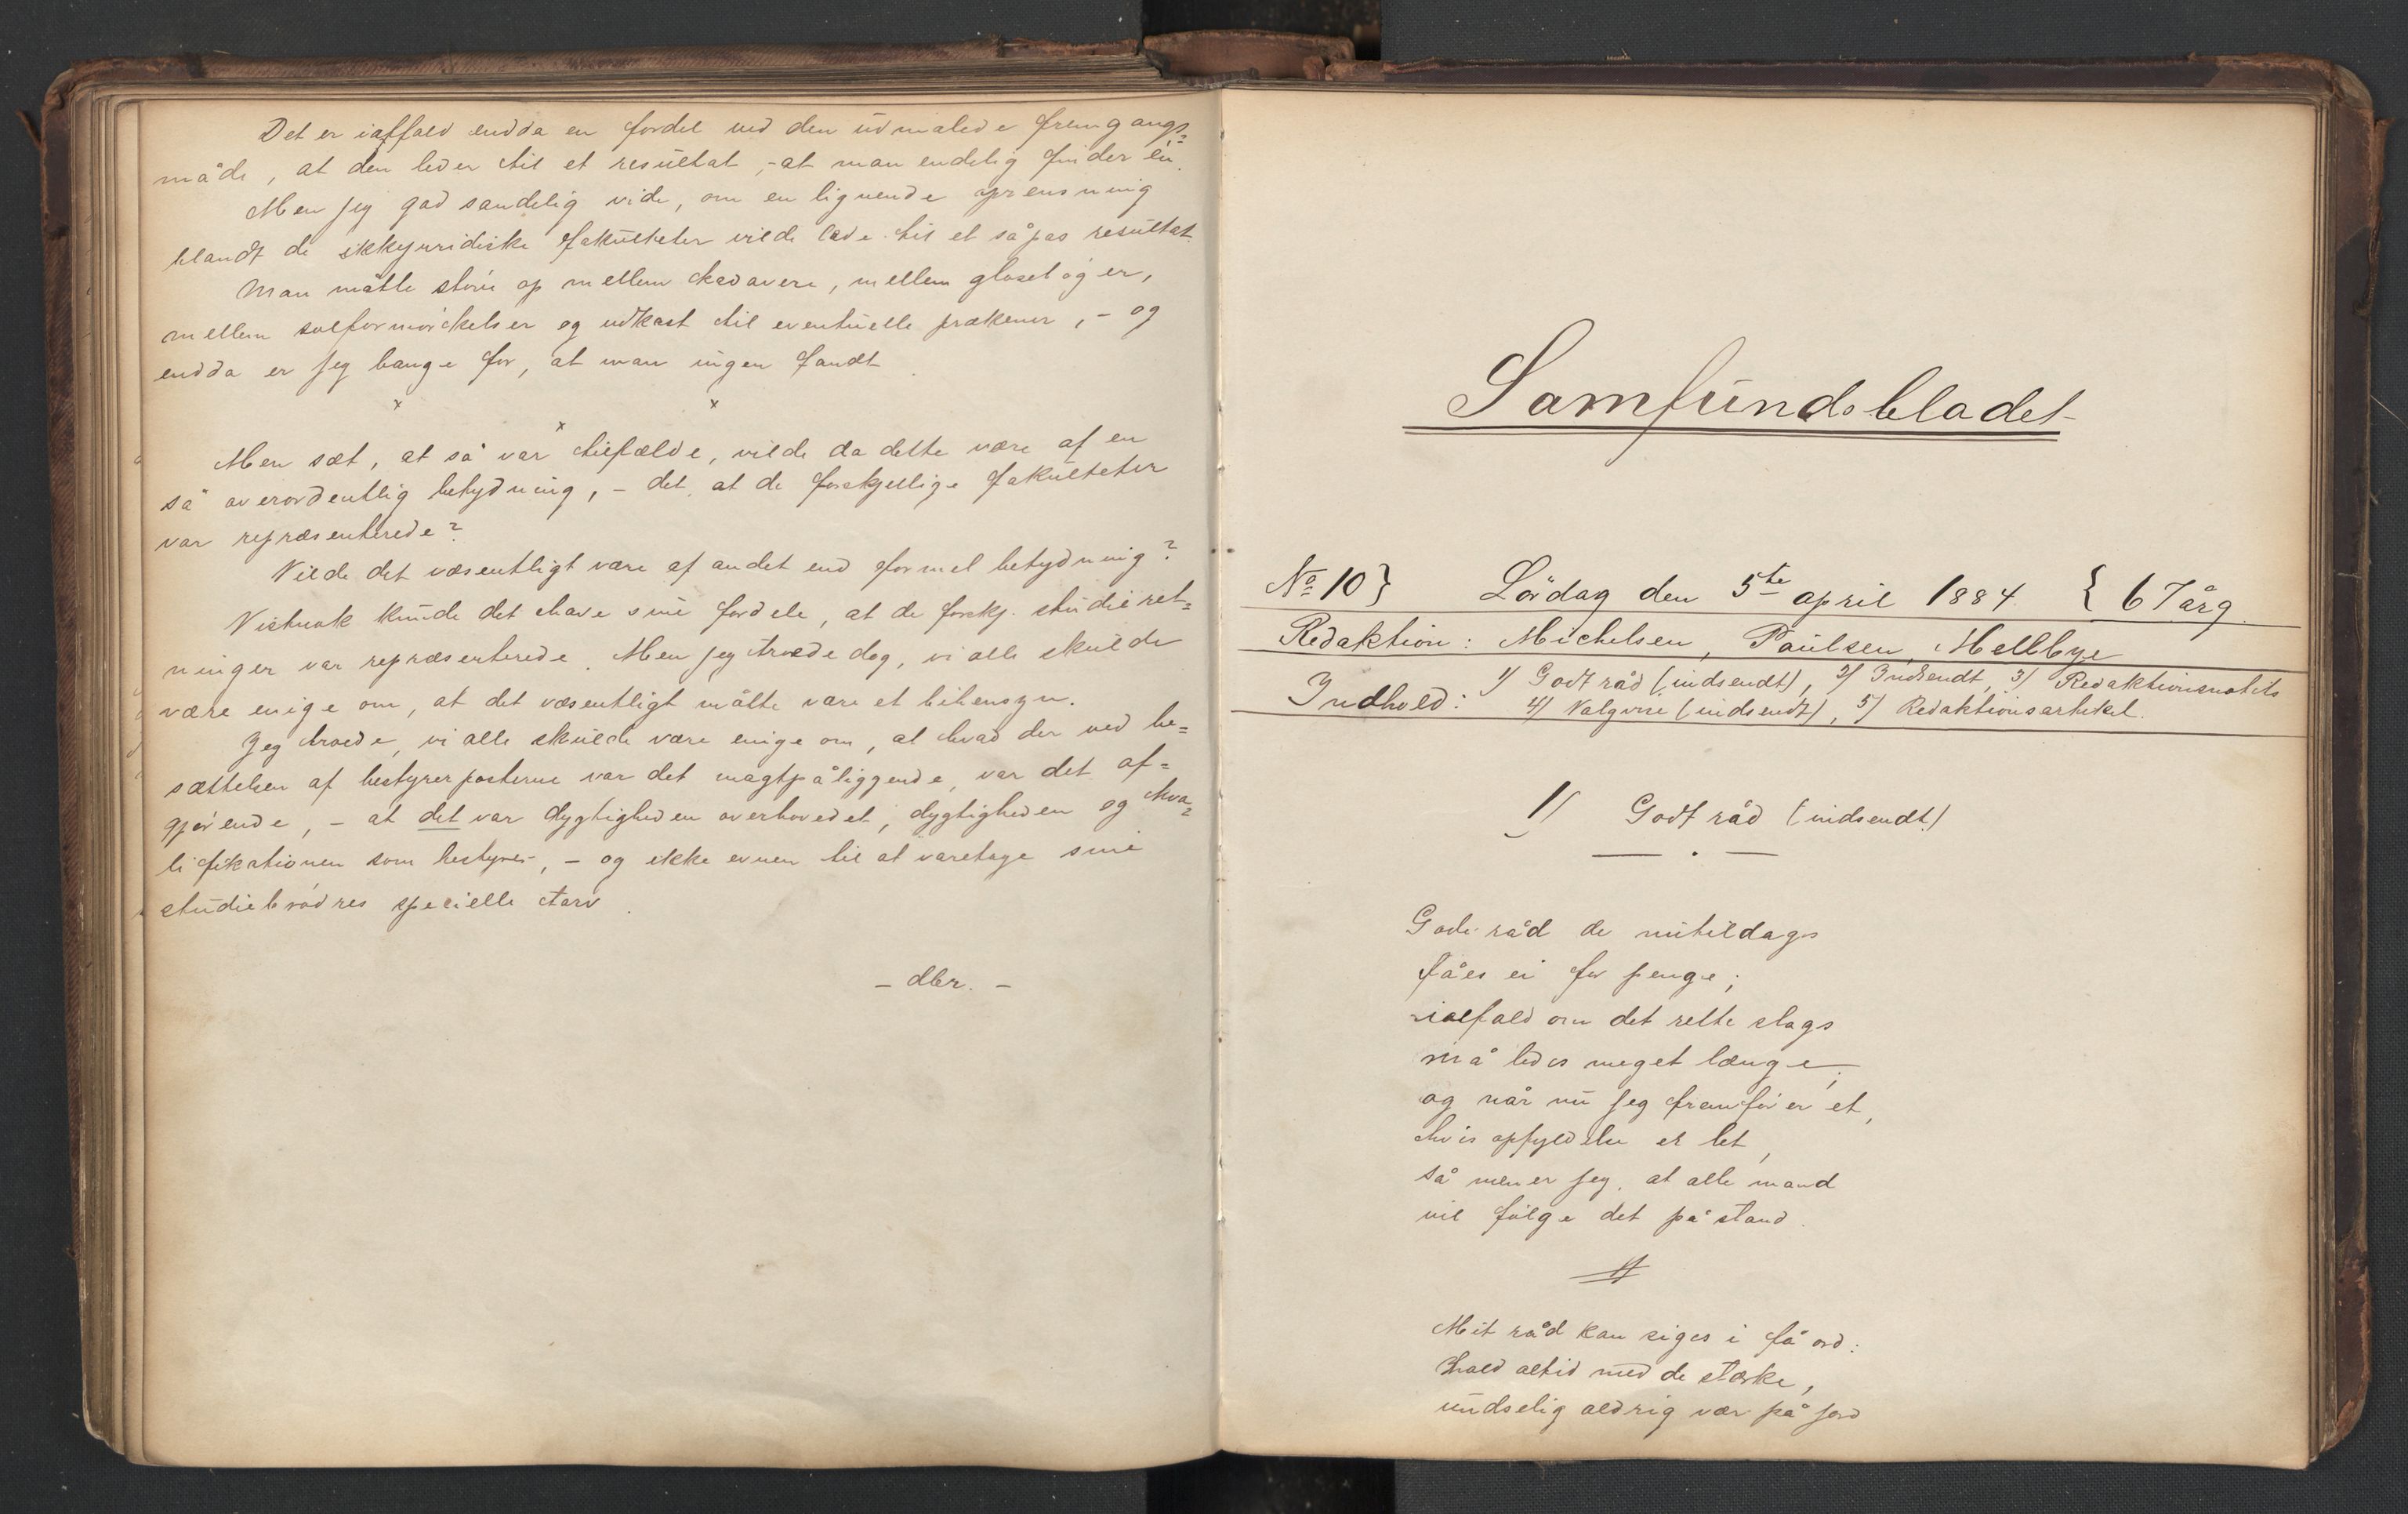 Det er ialfald endda en fordel ved den udmalede fremgangs=
måde, at den leder til et resultat, - at man endelig finder én.
Men jeg gad sandelig vide, om en lignende oprensning
blandt de ikkejuridiske fakulteter vilde lede til et såpas resultat.
Man måtte støve op mellem kadavere, mellem gloseløger,
mellem solformørkelser og udkast til eventuelle prækener, - og
endda er jeg bange for, at man ingen fandt.
x x x
Men sæt, at så var tilfælde, vilde da dette være af en
så overordentlig betydning, - det, at de forskjellige fakulteter
var repræsenterede?
Vilde det væsentligt være af andet end formel betydning?
Vistnok kunde det have sine fordele, at de forskj. studieret=
ninger var repræsenterede. Men jeg troede dog, vi alle skulde
være enige om, at det væsentligt måtte være et bihensyn.
Jeg troede, vi alle skulde være enige om, at hvad der ved be=
sættelsen af bestyrerposterne var det magtpåliggende, var det af=
gjørende, - at det var dygtigheden overhovedet, dygtigheden og kva=
lifikationen som bestyrer, - og ikke evnen til at varetage sine
studiebrødres specielle tarv.
- dbr. -
Samfundsbladet
No 10} Lördag den 5te april 1884 { 6 7 årg.
Redaktion: Michelsen, Paulsen, Mellbye
Indhold: 1) Godt råd (indsendt), 2) Indsendt, 3) Redaktionsnotits
4) Valgvise (indsendt), 5) Redaktionsartikel.
1) Godt råd (indsendt)
Gode råd de nutildags
fåes ei for penge;
ialfald om det rette slags
må ledes meget længe;
og når nu jeg fremfører et,
hvis opfyldelse er let,
så mener jeg, at alle mand
vil følge det på stand.
Mit råd kan siges i få ord:
hold altid med de stærke,
undselig aldrig vær på jord